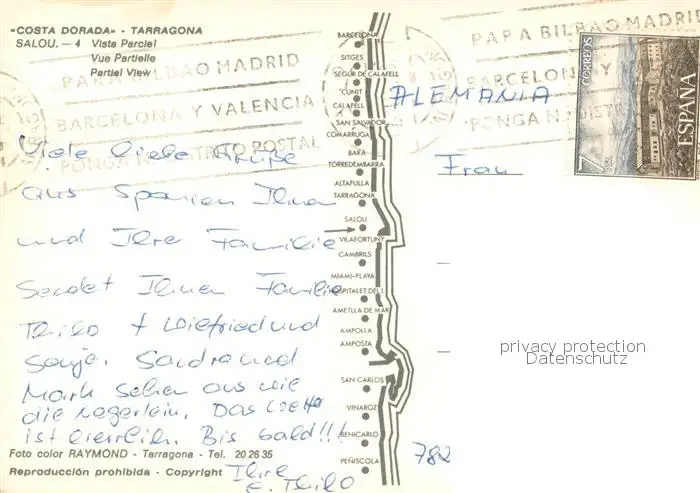 "COSTA DORADA" - TARRAGONA
SALOU. - 4 Vista Parcial
Vue Partielle
Partial View
PARA BILBAO MADRID
BARCELONA Y VALENCIA
PONGA Nº DISTRITO POSTAL
Viele liebe Grüße
aus Spanien Ihnen
und Ihre Familie
Sendet Ihnen Familie
Thilo + Wiefried und
Sonja. Sandra und
Mark sehen aus wie
die Negerlein. Das Wetter
ist herrlich. Bis bald!!!
Ihre
E. Thilo
Foto color RAYMOND - Tarragona - Tel. 20 26 35
Reproducción prohibida - Copyright
BARCELONA
SITGES
SEGUR DE CALAFELL
CUNIT
CALAFELL
SAN SALVADOR
COMARRUGA
BARA
TORREDEMBARRA
ALTAFULLA
TARRAGONA
SALOU
VILAFORTUNY
CAMBRILS
MIAMI-PLAYA
HOSPITALET DEL I.
AMETLLA DE MAR
AMPOLLA
AMPOSTA
SAN CARLOS
VINAROZ
BENICARLO
PEÑISCOLA
PARA BILBAO MADRID
BARCELONA Y
PONGA Nº DIST
ALEMANIA
Frau
CORREOS
7
PTAS
ESPAÑA
privacy protection
Datenschutz
782